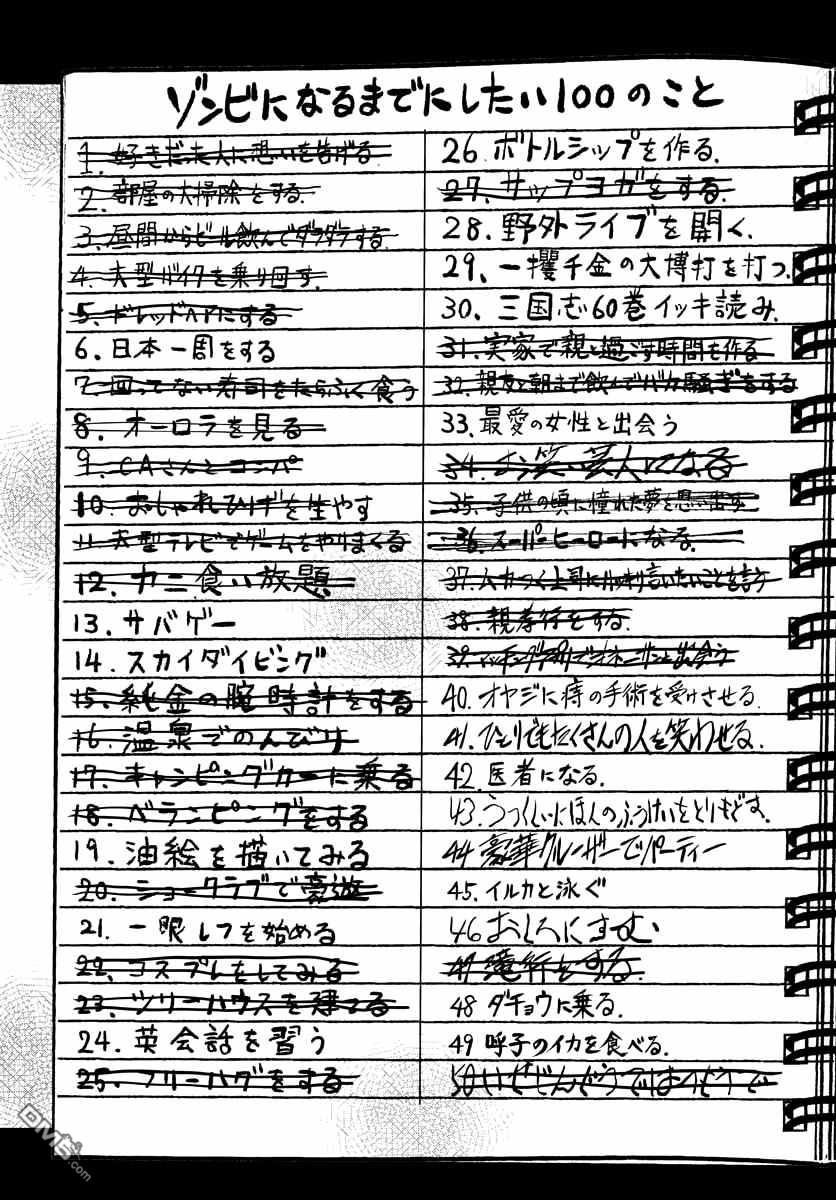 ゾンビになるまでにしたい100のこと
1. 好きだった人に想いを告げる
2. 部屋の大掃除をする.
3. 昼間からビール飲んでダラダラする
4. 大型バイクを乗り回す.
5. ドレッドヘアにする
6. 日本一周をする
7. 回ってない寿司をたらふく食う
8. オーロラを見る
9. CAさんとコンパ
10. おしゃれひげを生やす
11. 大型テレビでゲームをやりまくる
12. カニ食い放題
13. サバゲー
14. スカイダイビング
15. 純金の腕時計をする
16. 温泉でのんびり
17. キャンピングカーに乗る
18. ベランピングをする
19. 油絵を描いてみる
20. ショークラブで豪遊
21. 一眼レフを始める
22. コスプレをしてみる
23. ツリーハウスを建てる
24. 英会話を習う
25. フリーハグをする
26. ボトルシップを作る.
27. サップヨガをする.
28. 野外ライブを開く.
29、一攫千金の大博打を打つ.
30. 三国志60巻イッキ読み.
31. 実家で親と過ごす時間を作る
32. 親友と朝まで飲んでバカ騒ぎをする
33. 最愛の女性と出会う
34. お笑い芸人になる
35. 子供の頃に憧れた夢を思い出す
36. スーパーヒーローになる.
37. ムカつく上司にハッキリ言いたいことを言う
38. 親孝行をする.
39. マッチングアプリでオネーサンと出会う
40. オヤジに痔の手術を受けさせる.
41. ひとりでもたくさんの人を笑わせる.
42. 医者になる.
43. うつくしいにほんのふうけいをとりもどす.
44 豪華クルーザーでパーティー
45. イルカと泳ぐ
46 おしろにすむ
47 滝行をする.
48 ダチョウに乗る.
49 呼子のイカを食べる.
50